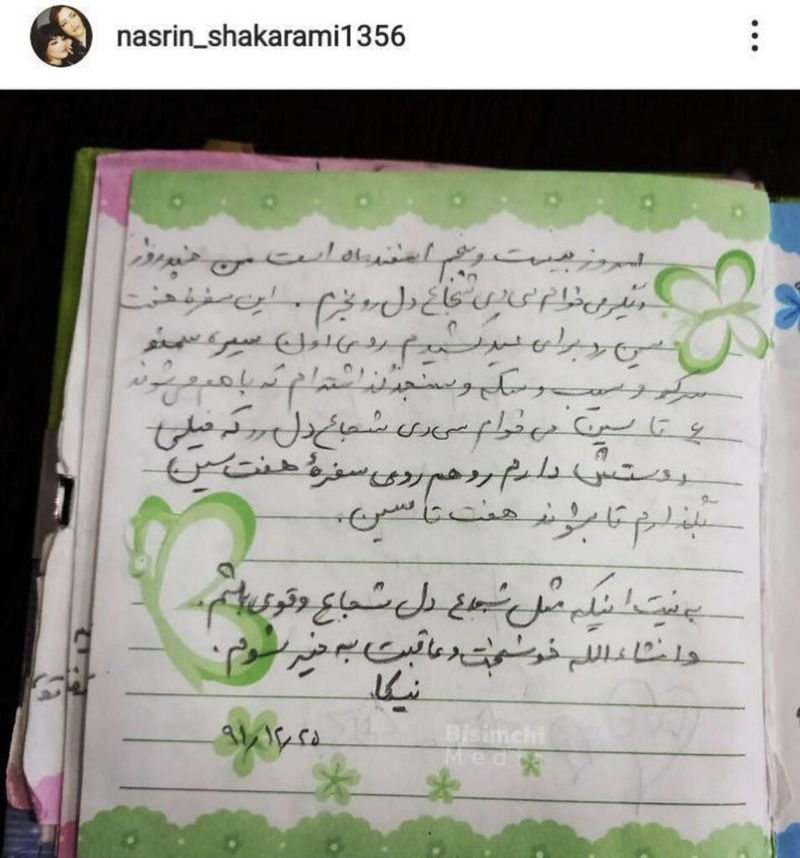 nasrin_shakarami1356
امروز بیست و پنجم اسفندماه است من چند روز
دیگر می خوام سی دی شجاع دل رو بخرم. این سفرهٔ هفت
سین رو برای عید کشیدم روی اون سیر، سمنو
سرکه و سیب و سکه و سنجد گذاشته ام که با هم می شوند
۶ تا سین. می خوام سی دی شجاع دل رو که خیلی
دوستش دارم رو هم روی سفرهٔ هفت سین
بگذارم تا بشوند هفت تا سین.
به نیت اینکه مثل شجاع دل شجاع و قوی باشم.
و انشاءالله خوشبخت و عاقبت به خیر شوم.
نیکا
۹۱/۱۲/۲۵
Bisimchi
Media